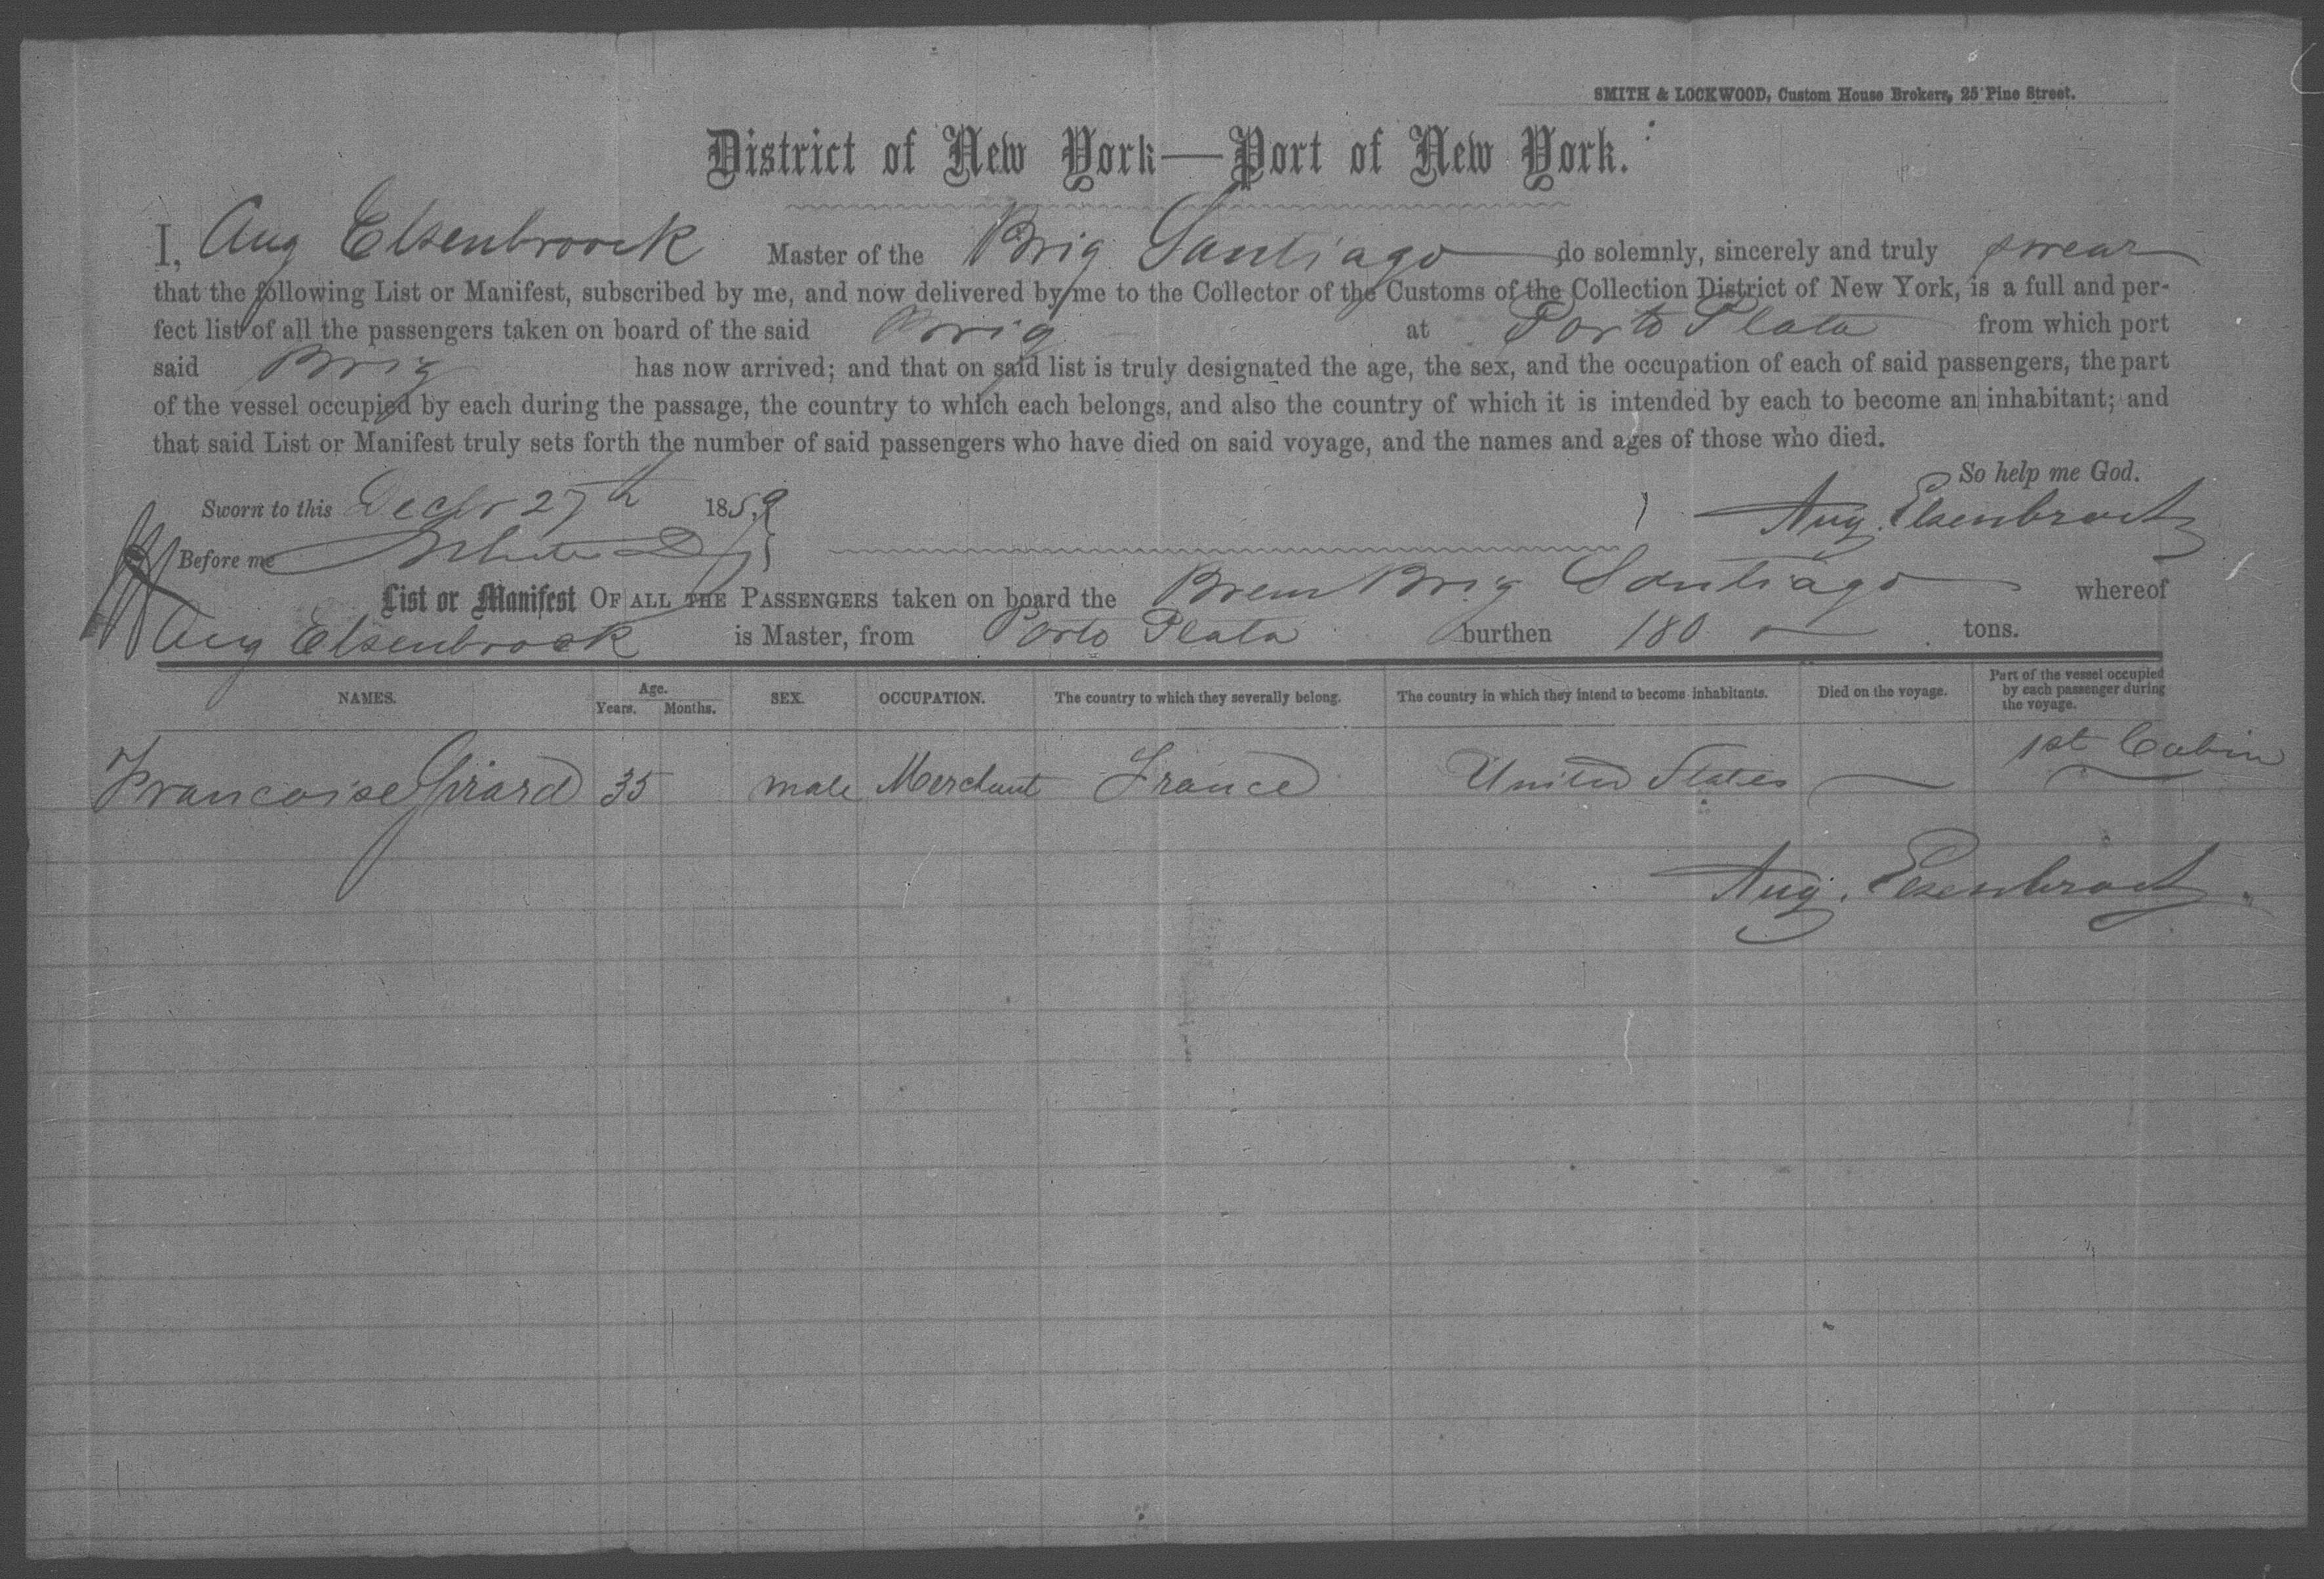 SMITH & LOCKWOOD, Custom House Brokers, 25 Pine Street.
District of New York—Port of New York.
I, Aug Elsenbroock Master of the Brig Santiago do solemnly, sincerely and truly swear
that the following List or Manifest, subscribed by me, and now delivered by me to the Collector of the Customs of the Collection District of New York, is a full and per-
fect list of all the passengers taken on board of the said Brig at Porto Plata from which port
said Brig has now arrived; and that on said list is truly designated the age, the sex, and the occupation of each of said passengers, the part
of the vessel occupied by each during the passage, the country to which each belongs, and also the country of which it is intended by each to become an inhabitant; and
that said List or Manifest truly sets forth the number of said passengers who have died on said voyage, and the names and ages of those who died.
So help me God.
Sworn to this Decbr 27th 1859 Aug. Elsenbrock
Before me
List or Manifest OF ALL THE PASSENGERS taken on board the Brem Brig Santiago whereof
Aug Elsenbrock is Master, from Porto Plata burthen 180 tons.
NAMES. Age. Years. Months. SEX. OCCUPATION. The country to which they severally belong. The country in which they intend to become inhabitants. Died on the voyage. Part of the vessel occupied by each passenger during the voyage.
Francoise Girard 35 male Merchant France United States — 1st Cabin
Aug. Elsenbrock